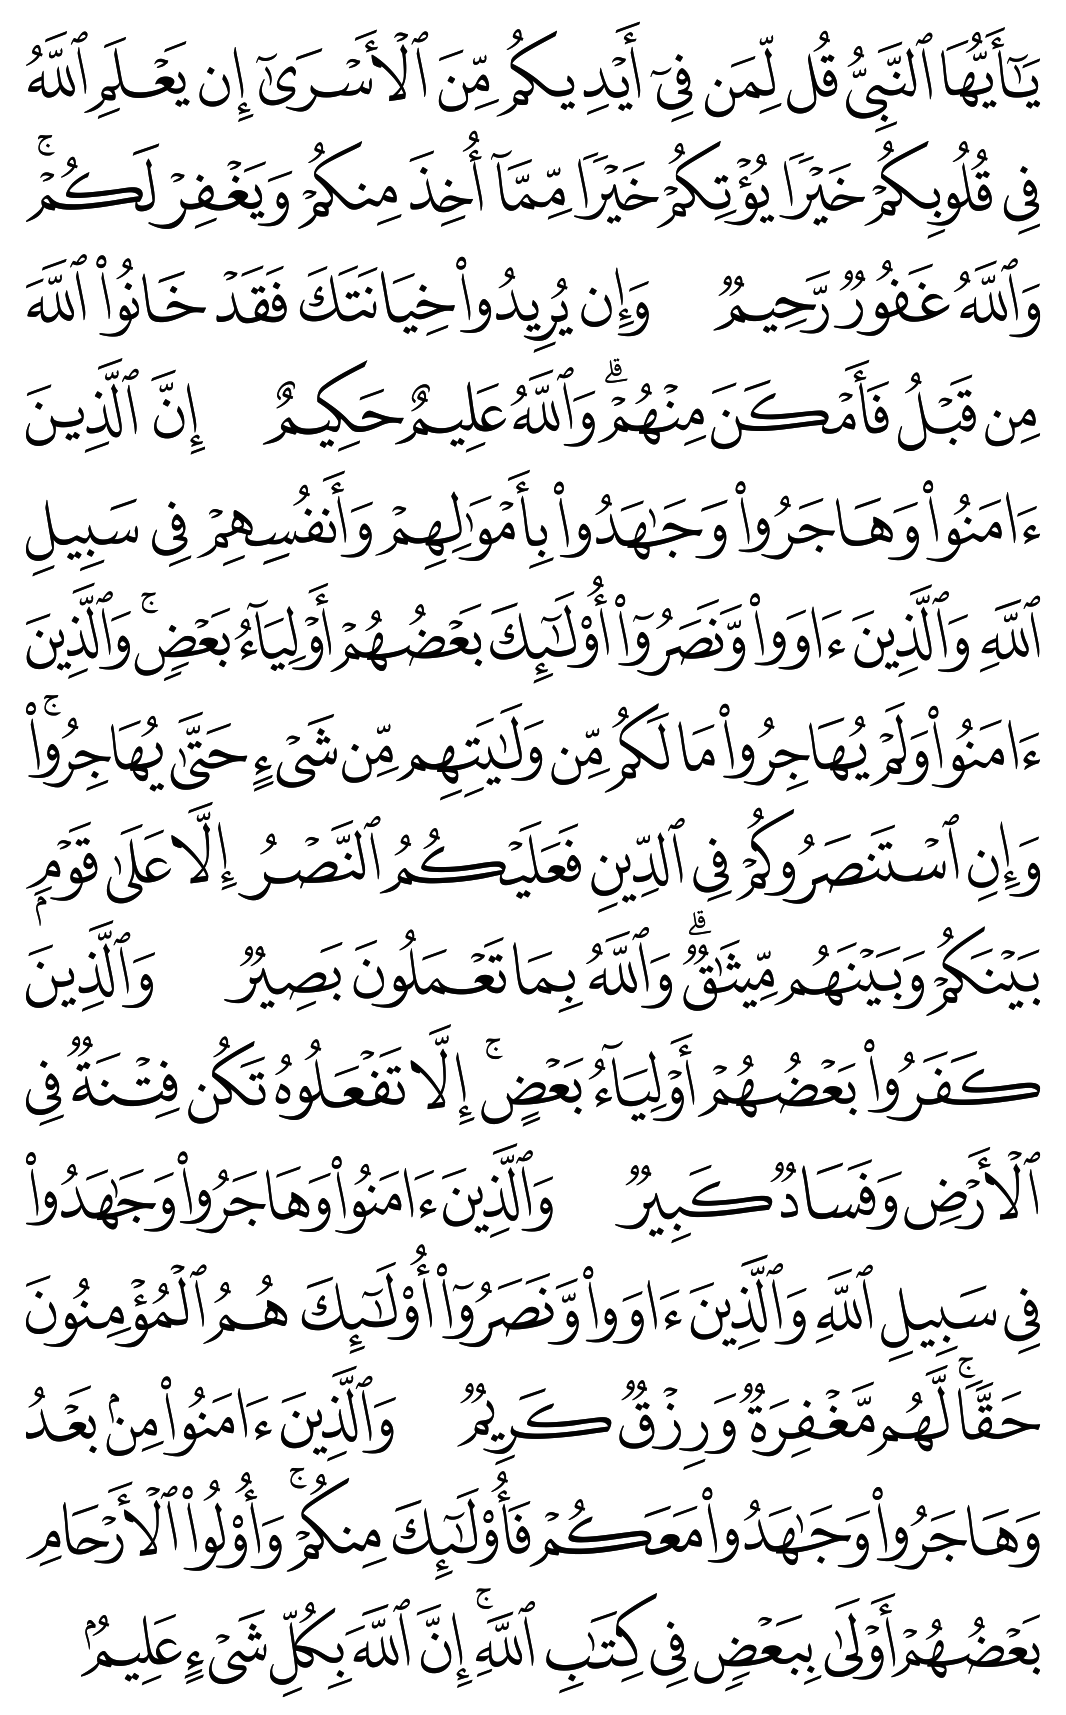 يَٰٓأَيُّهَا ٱلنَّبِىُّ قُل لِّمَن فِىٓ أَيْدِيكُم مِّنَ ٱلْأَسْرَىٰٓ إِن يَعْلَمِ ٱللَّهُ
فِى قُلُوبِكُمْ خَيْرًا يُؤْتِكُمْ خَيْرًا مِّمَّآ أُخِذَ مِنكُمْ وَيَغْفِرْ لَكُمْ ۚ
وَٱللَّهُ غَفُورٌ رَّحِيمٌ وَإِن يُرِيدُوا۟ خِيَانَتَكَ فَقَدْ خَانُوا۟ ٱللَّهَ
مِن قَبْلُ فَأَمْكَنَ مِنْهُمْ ۗ وَٱللَّهُ عَلِيمٌ حَكِيمٌ إِنَّ ٱلَّذِينَ
ءَامَنُوا۟ وَهَاجَرُوا۟ وَجَٰهَدُوا۟ بِأَمْوَٰلِهِمْ وَأَنفُسِهِمْ فِى سَبِيلِ
ٱللَّهِ وَٱلَّذِينَ ءَاوَوا۟ وَّنَصَرُوٓا۟ أُو۟لَٰٓئِكَ بَعْضُهُمْ أَوْلِيَآءُ بَعْضٍ ۚ وَٱلَّذِينَ
ءَامَنُوا۟ وَلَمْ يُهَاجِرُوا۟ مَا لَكُم مِّن وَلَٰيَتِهِم مِّن شَىْءٍ حَتَّىٰ يُهَاجِرُوا۟ ۚ
وَإِنِ ٱسْتَنصَرُوكُمْ فِى ٱلدِّينِ فَعَلَيْكُمُ ٱلنَّصْرُ إِلَّا عَلَىٰ قَوْمٍۭ
بَيْنَكُمْ وَبَيْنَهُم مِّيثَٰقٌ ۗ وَٱللَّهُ بِمَا تَعْمَلُونَ بَصِيرٌ وَٱلَّذِينَ
كَفَرُوا۟ بَعْضُهُمْ أَوْلِيَآءُ بَعْضٍ ۚ إِلَّا تَفْعَلُوهُ تَكُن فِتْنَةٌ فِى
ٱلْأَرْضِ وَفَسَادٌ كَبِيرٌ وَٱلَّذِينَ ءَامَنُوا۟ وَهَاجَرُوا۟ وَجَٰهَدُوا۟
فِى سَبِيلِ ٱللَّهِ وَٱلَّذِينَ ءَاوَوا۟ وَّنَصَرُوٓا۟ أُو۟لَٰٓئِكَ هُمُ ٱلْمُؤْمِنُونَ
حَقًّا ۚ لَّهُم مَّغْفِرَةٌ وَرِزْقٌ كَرِيمٌ وَٱلَّذِينَ ءَامَنُوا۟ مِنۢ بَعْدُ
وَهَاجَرُوا۟ وَجَٰهَدُوا۟ مَعَكُمْ فَأُو۟لَٰٓئِكَ مِنكُمْ ۚ وَأُو۟لُوا۟ ٱلْأَرْحَامِ
بَعْضُهُمْ أَوْلَىٰ بِبَعْضٍ فِى كِتَٰبِ ٱللَّهِ ۚ إِنَّ ٱللَّهَ بِكُلِّ شَىْءٍ عَلِيمٌۢ